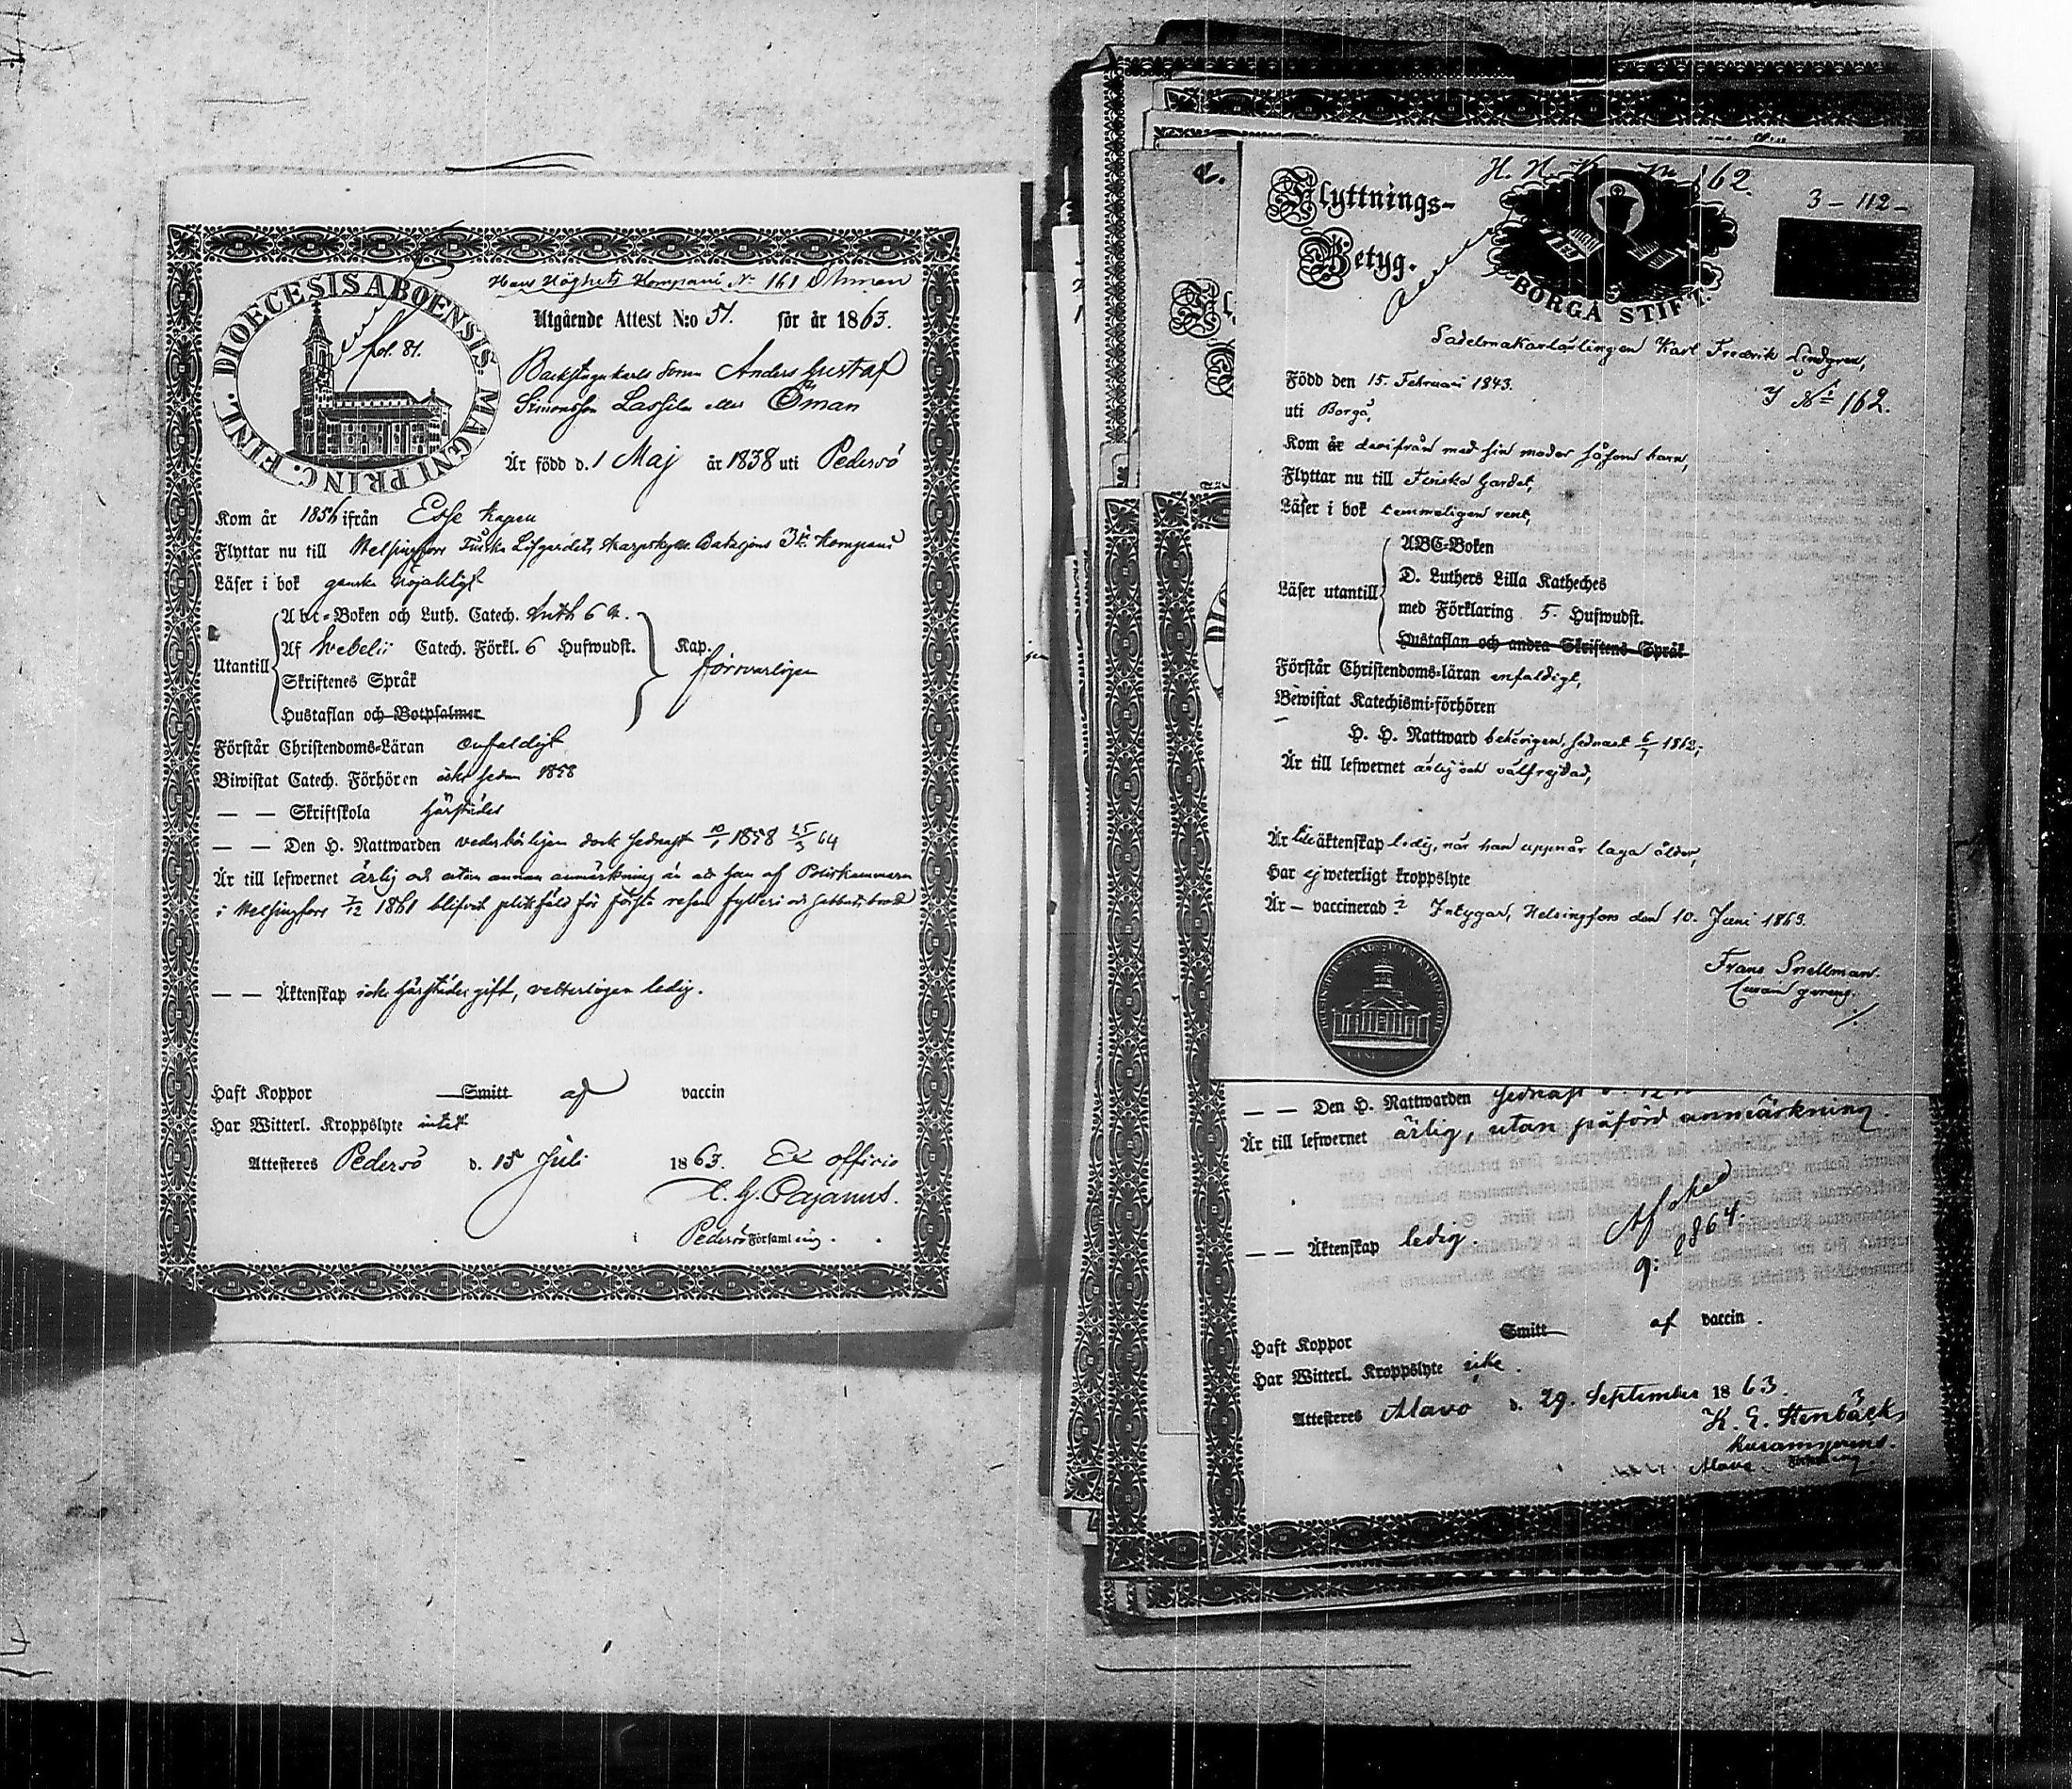 Hans Höghets Kompani No 161 Öhman
DIOECESIS ABOENSIS. MAGNI PRINC. FINL.
fol. 81.
Utgående Attest N:o 51. för år 1863.
Backstugukarls Sonen Anders Gustaf
Simonsson Lassila eller Öman
Är född d. 1 Maj år 1838 uti Pedersö
Kom år 1856 ifrån Esse Kapell
Flyttar nu till Helsingfors Finska Lifgardets Skarpskytte Bataljons 3e Kompani
Läser i bok ganska nöjaktigt
Abc-Boken och Luth. Catech.
Utantill
Af Svebelii Catech. Förkl. 6 Hufwudst. Kap.
försvarligen
Skriftenes Språk
Hustaflan och Botpsalmer
Förstår Christendoms-Läran enfaldigt
Biwistat Catech. Förhören icke sedan 1858
— — Skriftskola härstädes
— — Den H. Nattwarden vederbörligen dock sednast 10/1 1858 25/3 64
Är till lefwernet ärlig och utan annan anmärkning än att han af Poliskammaren
i Helsingfors 7/12 1861 blifvit pliktfäld för första resan fylleri och sabbatsbrott
— — Äktenskap icke härstädes gift, vetterligen ledig.
Haft Koppor Smitt af vaccin
Har Witterl. Kroppslyte intet
Attesteres Pedersö d. 15 Juli 1863. Ex officio
Pedersö Församling.
Flyttnings-
Betyg.
162.
3 - 112 -
BORGÅ STIFT.
Sadelmakarlärlingen Karl Fredrik Lindgren,
Född den 15. Februari 1843.
No 162.
uti Borgå,
Kom år derifrån med sin moder såsom barn,
Flyttar nu till Finska Gardet,
Läser i bok temmeligen rent,
ABC-Boken
D. Luthers Lilla Katheches
Läser utantill
med Förklaring 5. Hufwudst.
Hustaflan och andra Skriftens Språk
Förstår Christendoms-läran enfaldigt,
Bewistat Katechismi-förhören
H. H. Nattward behörigen, sednast 6/1 1863;
Är till lefwernet ärlig och välfrejdad,
Är till äktenskap ledig, när han uppnår laga ålder,
Har ej weterligt kroppslyte
Är — vaccinerad? Intygar, Helsingfors den 10. Juni 1863.
Frans Snellman.
— — Den H. Nattwarden sednast
Är till lefwernet ärlig, utan påförd anmärkning.
Afsked
9: 1864.
— — Äktenskap ledig.
Haft Koppor Smitt af vaccin.
Har Witterl. Kroppslyte icke.
Attesteres Alavo d. 29. September 1863.
K. E. Stenbäck
Alavo Församling.